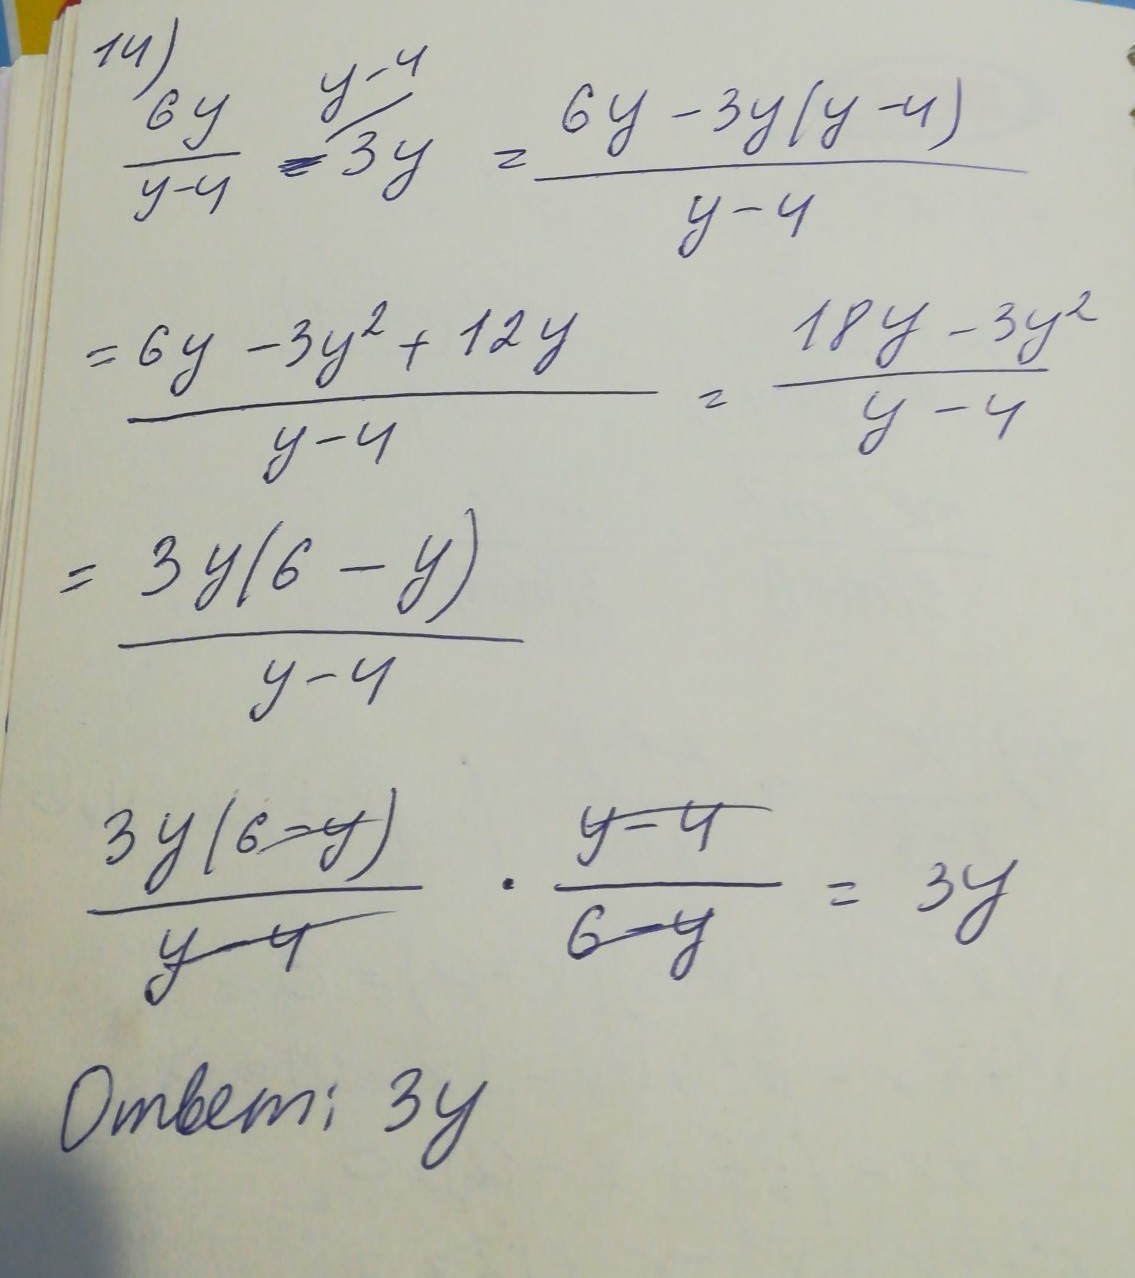 14)
6y/(y-4) - 3y^(y-4) = (6y - 3y(y-4))/(y-4)
= (6y - 3y² + 12y)/(y-4) = (18y - 3y²)/(y-4)
= 3y(6-y)/(y-4)
3y(6-y)/(y-4) · (y-4)/(6-y) = 3y
Ответ: 3y